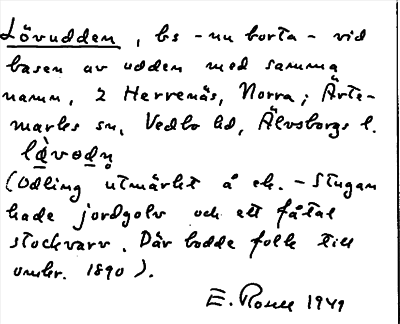 Lövudden, bs - nu borta - vid
basen av udden med samma
namn, 2 Herrenäs, Norra; Ärte-
marks sn, Vedbo hd, Älvsborgs l.
(Odling utmärkt å ek. - Stugan
hade jordgolv och ett fåtal
stockvarv. Där bodde folk till
omkr. 1890).
E. 1949